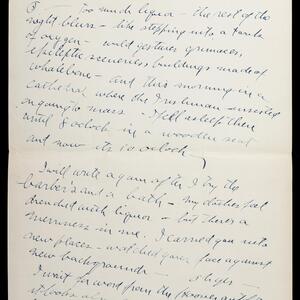 so much liquor - the rest of the
night blurs - like stepping into a tank
of oxygen - wild gestures grimaces,
epileptic sceneries buildings made of
whalebone - and this morning in a
cathedral where the Irishman insisted
on going to mass. I fell asleep there
until 8 oclock in a wooden seat
and now its 10 oclock
I will write again after I try the
barber's and a bath - my clothes feel
drenched with liquor - but there's a
merriness in me. I carried you into
new places - watched your face against
new backgrounds - skyes
I wait for word from